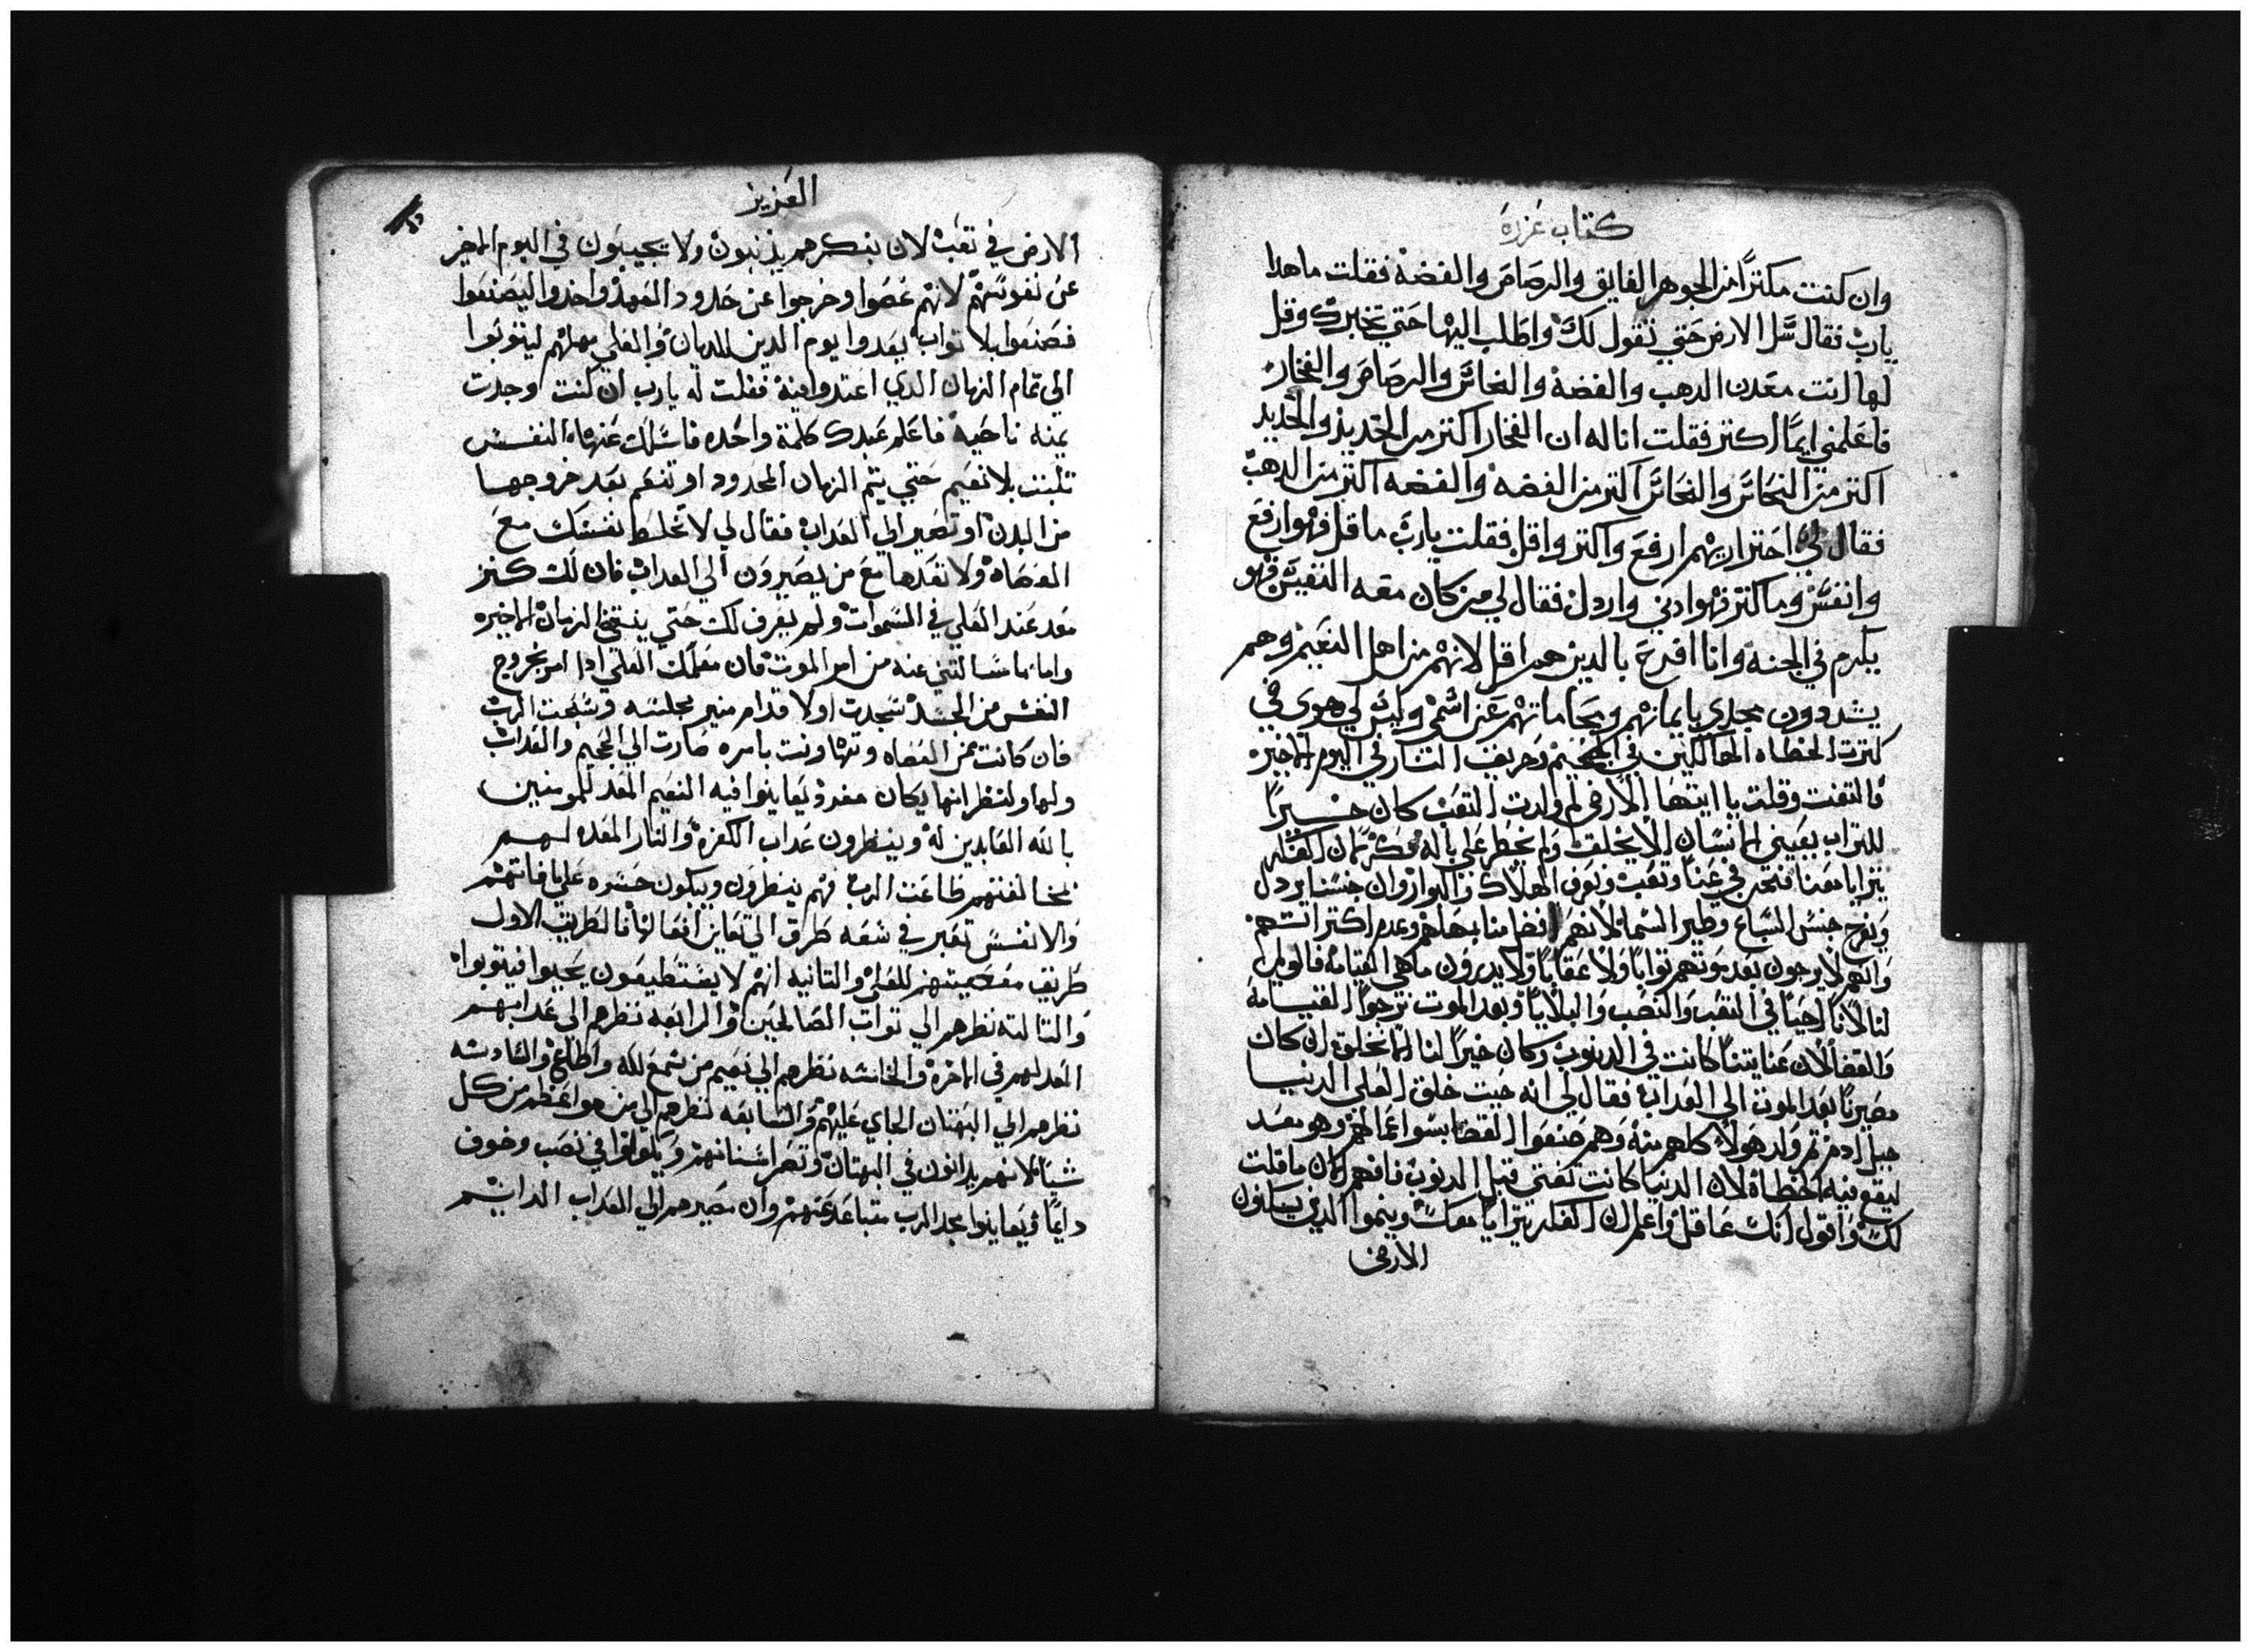 كتاب عزرة
وان كنت مكترًا من الجوهر الفايق والرصاص والفضة فقلت ماهدا
يارب فقال سَل الارض حتي تقول لك واطلب اليها حتي تخبرك وقل
لها انت معدن الدهب والفضة والنحاس والرصاص والفخار
فاعلمني ايما اكتر فقلت انا له ان الفخار اكتر من الحديد والحديد
اكتر من النحاس والنحاس اكتر من الفضه والفضه اكتر من الدهب
فقال لي احتر ايهم ارفع واكتر واقل فقلت يارب ما قل فهو ارفع
وانفس وما كتر فهو ادني واردل فقال لي من كان معه النفيس فهو
يكرم في الجنة وانا افرح بالدين هم اقل لانهم من اهل النعيم وهم
يشددون مجدي بايمانهم وبحاماتهم عن اسمي وليس لي هوي في
كترت الخطاه الهالكين في الجحيم وحريق النار في اليوم الاخيره
فالتفت وقلت يا ايتها الارض لم ولدت التعب كان خيرًا
للتراب يعيني الانسان الا يخلق ولم يخطر علي باله فكر لان العقل
يترايا معنا فنحن في عنا وتعب ونعرف الهلاك والبوار وان جنسنا يردل
ويفرح جنس السباع وطير السما لانهم افضل منا بجهلهم وعدم اكترا تهم
وانهم لا يرجون بعد موتهم توابًا ولا عقابًا ولا يدرون ما هي القيامة فالويل
لنا لاننا احيا في التعب والنصب والبلايا وبعد الموت نرجوا القيامة
والقضا لان عنايتنا كانت في الدنوب وكان خيرًا لنا الا نخلق ان كان
مصيرنا بعد الموت الي العداب فقال لي انه حيت خلق العلي الدنيا
جبل ادم تم ولد هولا كلهم منه وهم صنعوا القضا بسوا عمالهم وهو معد
ليقع فيه الخطاة لان الدنيا كانت تفني قبل الدنوب فافهم الان ما قلت
لك واقول انك عاقل واعلم ان العقل يترايا معك وينموا الدين يسكنون
الارض
العزيز
الارض في تعب لان بفكرهم يذنبون ولا يجيبون في اليوم الاخير
عن نفوسهم لانهم عصوا وخرجوا عن حدود العهد واخدوا ليصنعوا
فصنعوا بلا تواب بعدوا يوم الدين للديان والعلي يمهلهم ليتوبوا
الي تمام الزمان الدي اعتدوا فيه فقلت له يارب ان كنت وجدت
يمنه ناحية فاعلم عبدك كلمة واحده فاسلك عنها النفس
تلبت بلا نعيم حتي يتم الزمان المحدود او تنعم بعد خروجها
من البدن او تصير الي العداب فقال لي لا تخلط نفسك مع
العصاة ولا تعدها مع من يصيرون الي العداب فان لك كنز
معد عند العلي في السموات ولم يعرف لك حتي ينقضي الزمان الاخيره
واما ما سالتني عنه من امر الموت فان معلمك العلي ادا امر بخروج
النفس من الجسد سجدت اولا قدام منبر مجلسه وسبحت الرب
فان كانت من العصاه وتهاونت بامره صارت الي الجحيم والعداب
ولها ولنظرانها مكان مفرد يعاينوا فيه النعيم المعد للمومنين
بالله العابدين له وينظرون عداب الكفرة والنار المعده لهم
لمخالفتهم طاعت الرب فهم ينظرون ويبكون حسره علي ما فاتهم
والانفس تعبر في سبعه طرق الي تعاين افعالها فالطريق الاول
طريق معصيتهم للعلي والتانيه انهم لا يستطيعون يحيوا فيتوبوا
والتالته نظرهم الي تواب الصالحين والرابعه نظرهم الي عدابهم
المعد لهم في الاخرة والخامسه نظرهم الي نعيم من سمع لله واطاع والسادسه
نظرهم الي البهتان الجاي عليهم والسابعه نظرهم الي من هو اعظم من كل
شيا لانهم يدانون في البهتان وتصر اسنانهم ويكونوا في نصب وخوف
دايمًا ويعاينوا مجد الرب متباعد عنهم وان مصيرهم الي العداب الدايم